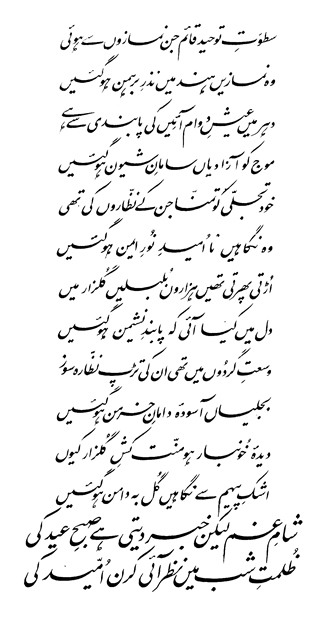 سطوتِ توحید قائم جن نمازوں سے ہوئی
وہ نمازیں ہند میں نذرِ برہمن ہوگئیں
دہر میں عیشِ دوام آئیں کی پابندی سے ہے
موج کو آزادیاں سامانِ شیون ہوگئیں
خود تجلّی کو تمنّا جن کے نظّاروں کی تھی
وہ نگاہیں نا اُمیدِ نُورِ ایمن ہوگئیں
اُڑتی پھرتی تھیں ہزاروں بُلبلیں گُلزار میں
دل میں کیا آئی کہ پابندِ نشیمن ہوگئیں
وسعتِ گردُوں میں تھی ان کی تڑپ نظّارہ سوز
بجلیاں آسودۂ دامانِ خرمن ہوگئیں
دیدۂ خُونبار ہو منّت کشِ گُلزار کیوں
اشکِ پیہم سے نگاہیں گُل بہ دامن ہوگئیں
شامِ غم لیکن خبر دیتی ہے صبحِ عید کی
ظُلمتِ شب میں نظر آئی کرن اُمّید کی